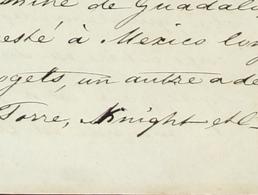 de Guadal
resté à Mexico lon
ogets, un autre a de
Torre, Knight et C